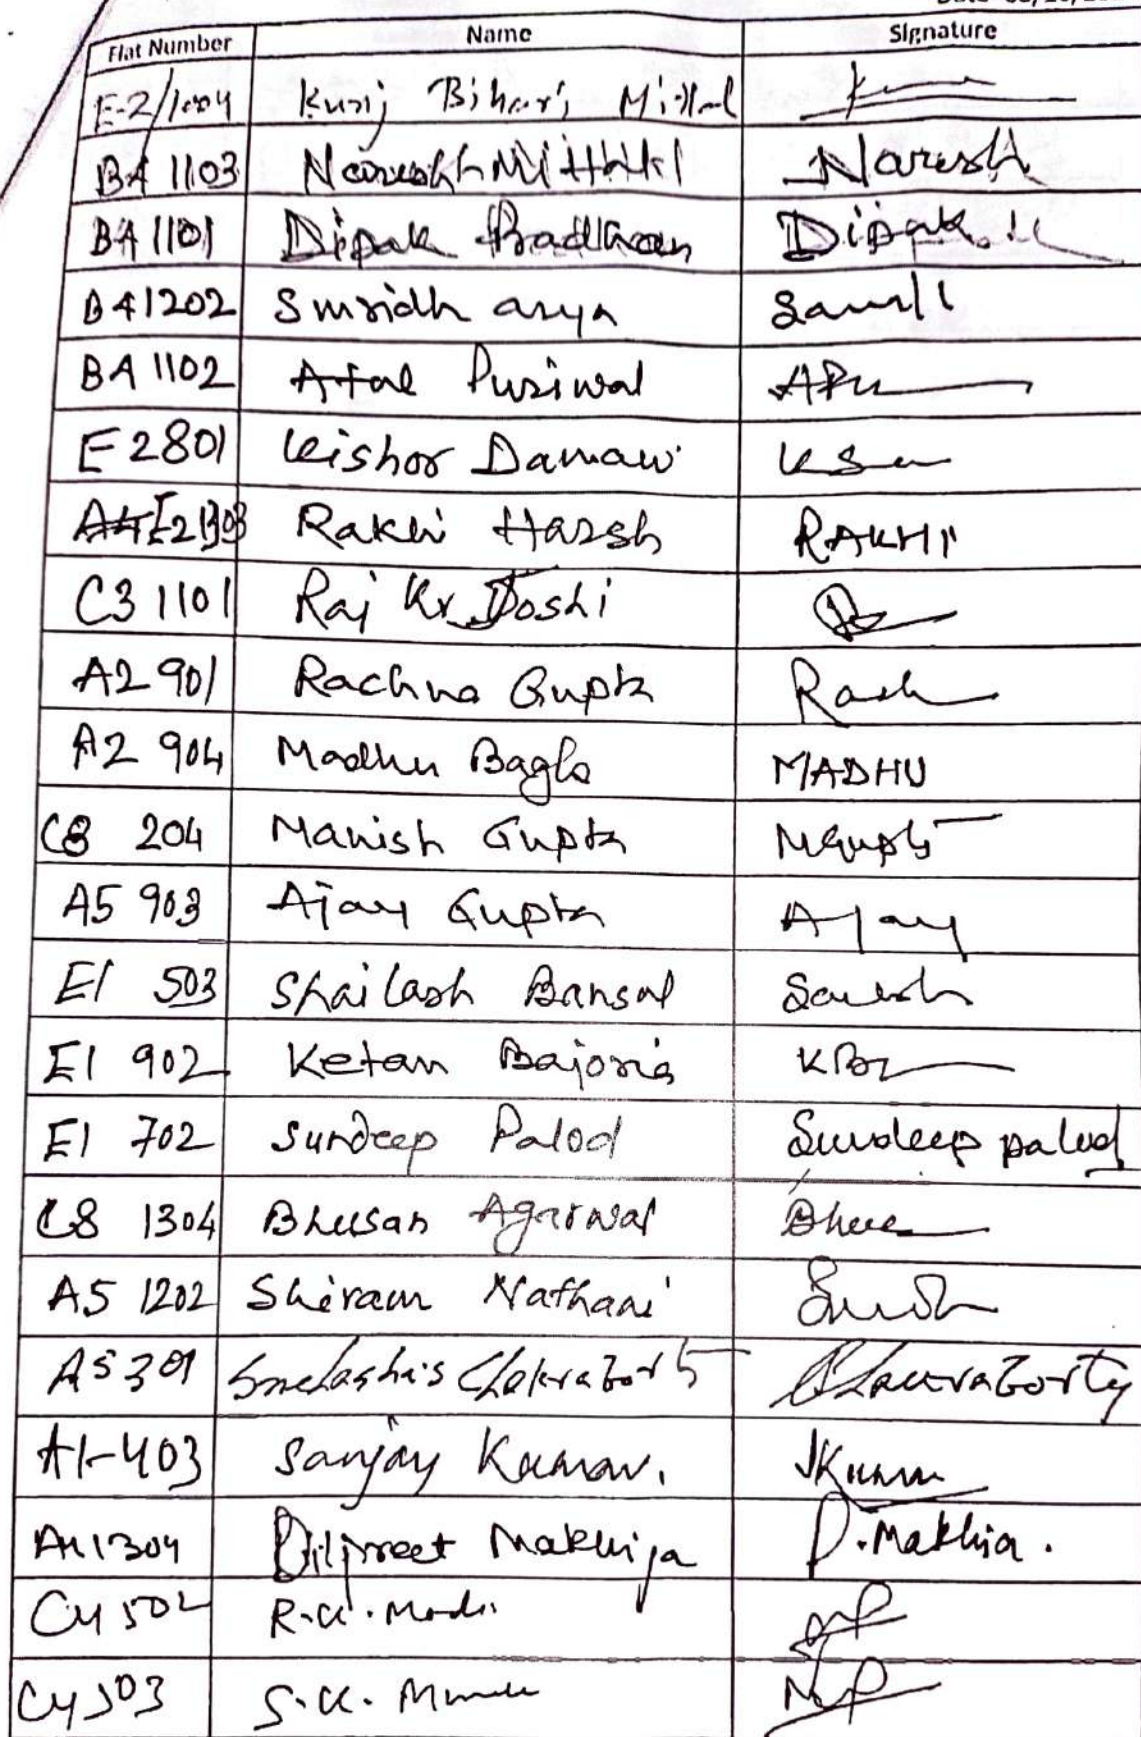 Flat Number Name Signature
E-2/1004 Kunj Bihari Mittal
BA 1103 Naresh Mittal Naresh
BA 1101 Dipak Pradhan Dipak
B41202 Smridh arya
BA 1102 Atal Puriwal
E 2801 Kishor Damani
E21303 Rakhi Harsh RAKHI
C3 1101 Raj Kr Joshi
A2 901 Rachna Gupta Rach
A2 904 Madhu Bagla MADHU
C8 204 Manish Gupta MGupta
A5 903 Ajay Gupta Ajay
E1 503 Shailash Bansal
E1 902 Ketan Bajoria
E1 702 Sundeep Palod Sundeep palod
C8 1304 Bhusan Agarwal
A5 1202 Shiram Nathani
A5 301 Snehashis Chakraborty Chakraborty
A1-403 Sanjay Kumar. SKumar
A41304 Diljreet Makhija D. Makhia.
C4 502 R.K. Modi
C4 503 S.K.